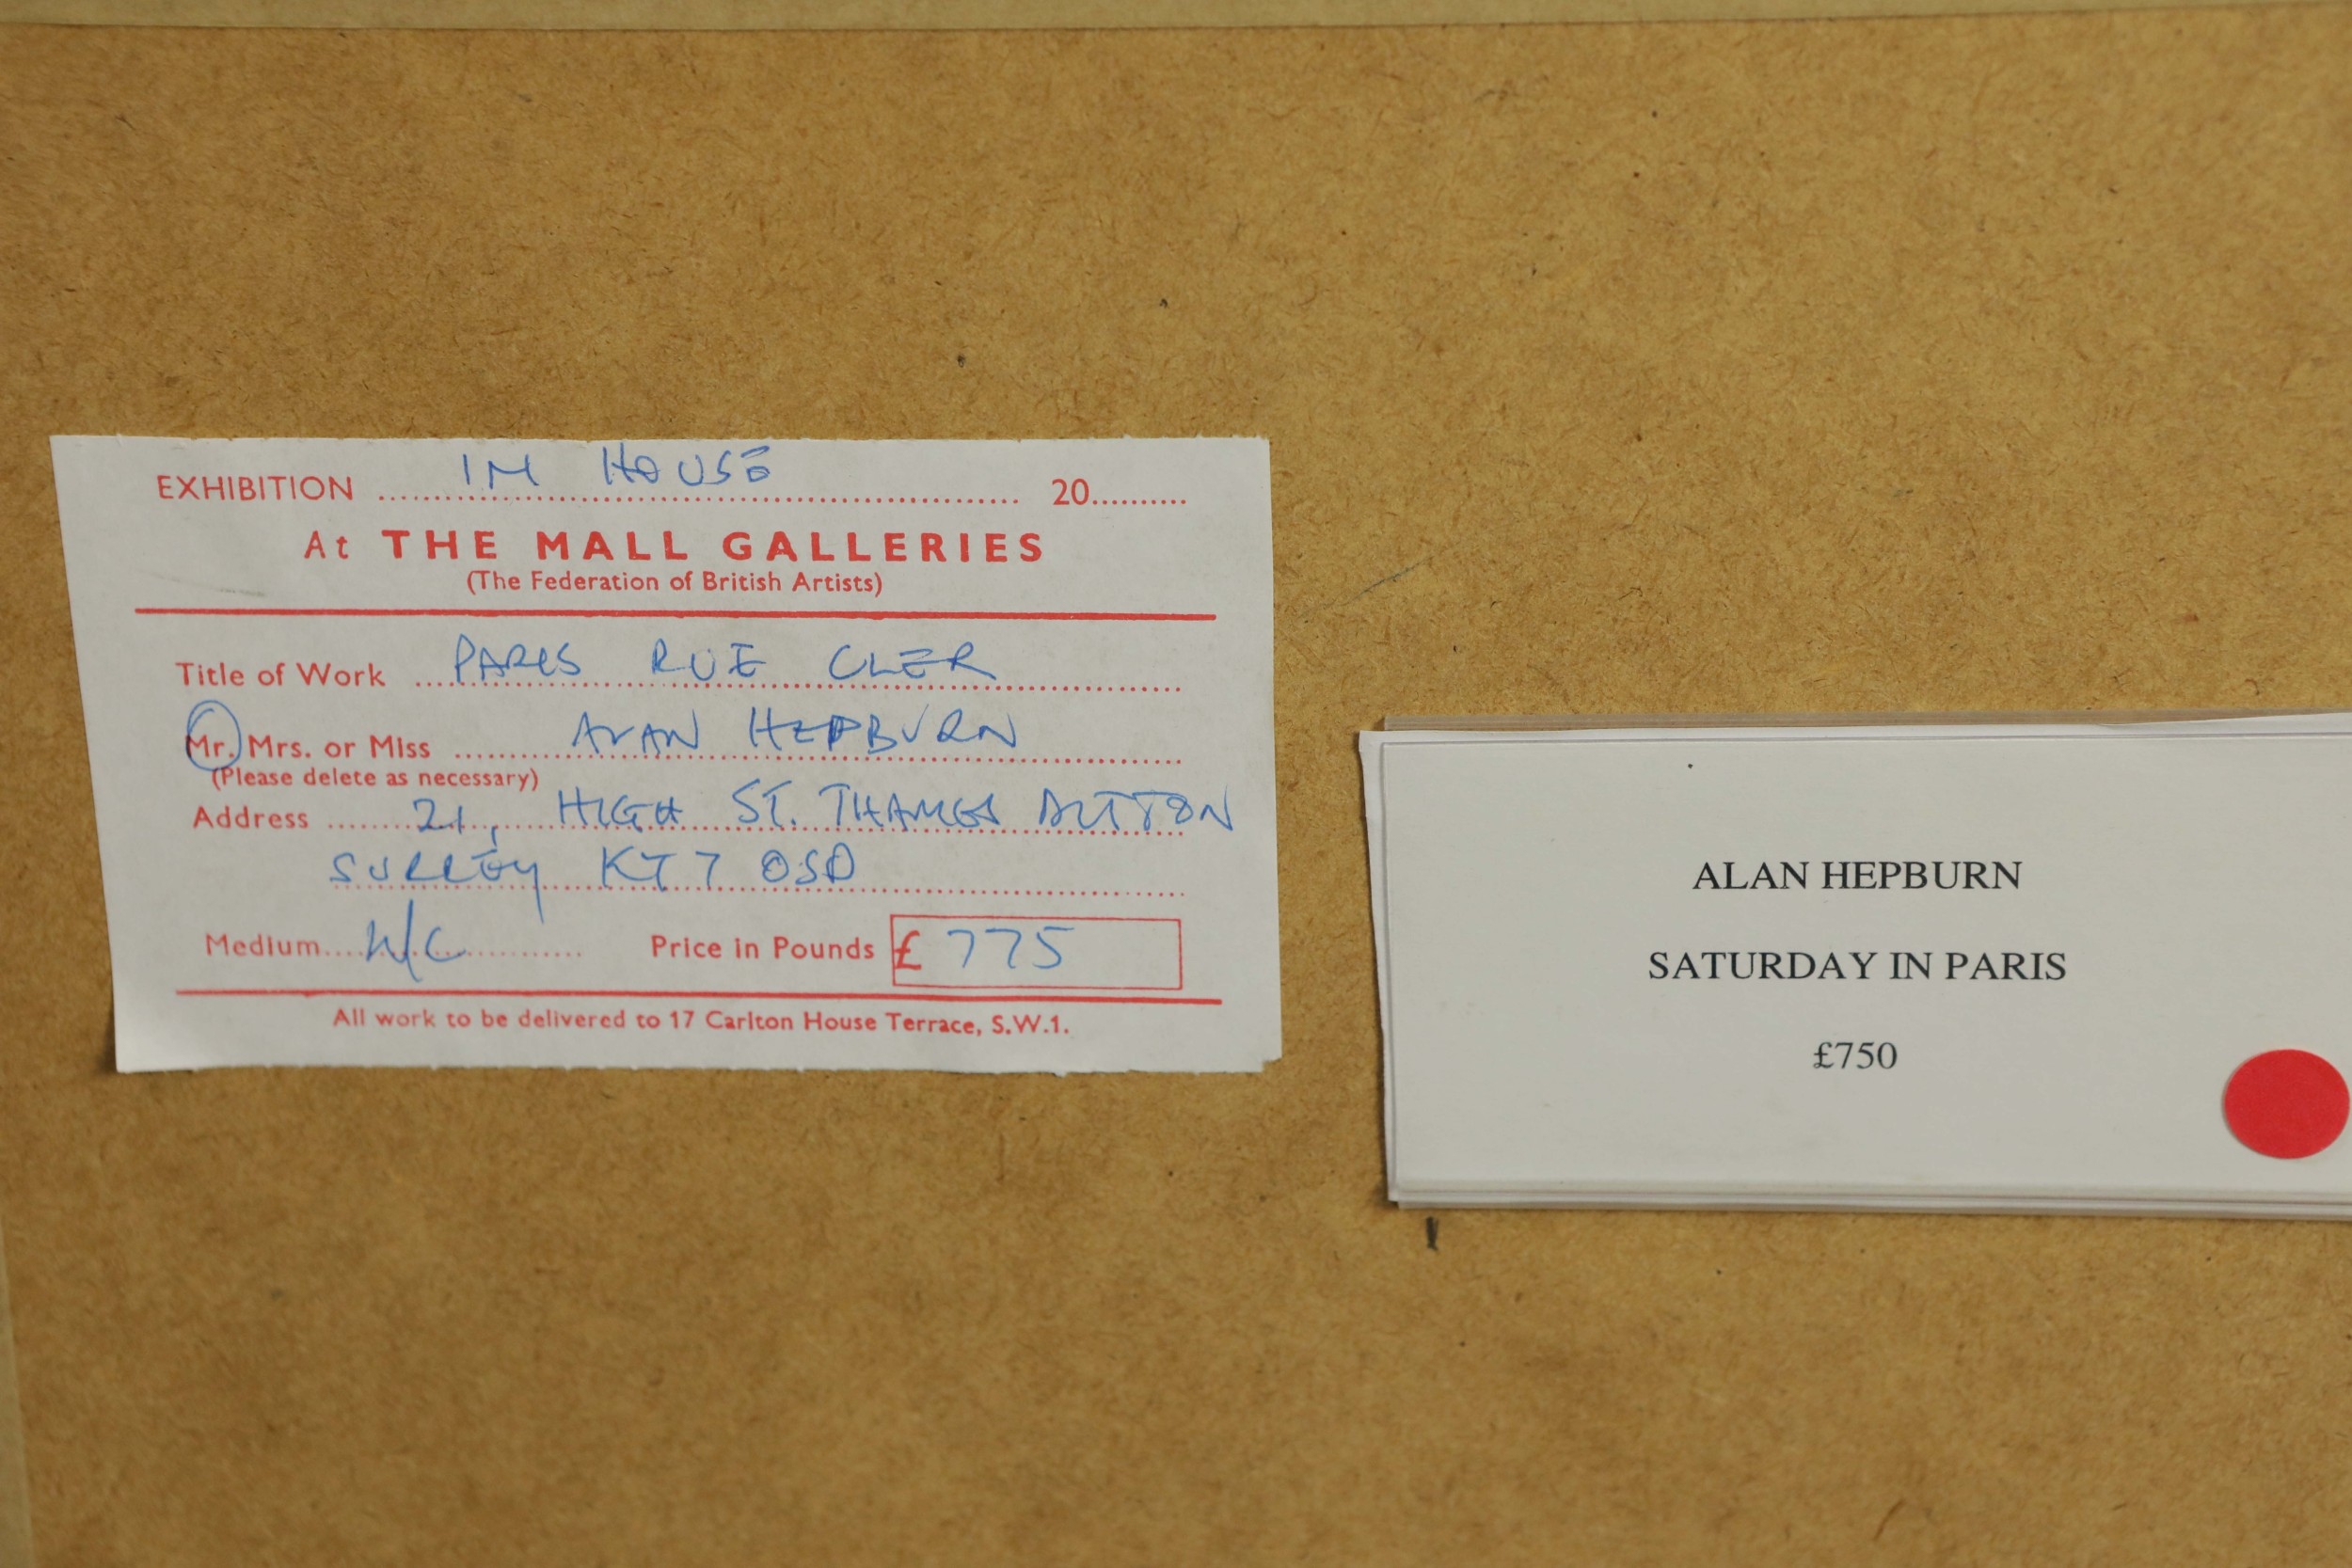 EXHIBITION IN HOUSE 20
At THE MALL GALLERIES
(The Federation of British Artists)
Title of Work PARIS RUE CLER
Mr. Mrs. or Miss ALAN HEPBURN
(Please delete as necessary)
Address 21, HIGH ST. THAMES DITTON
SURREY KT7 0SD
Medium W/C Price in Pounds £ 775
All work to be delivered to 17 Carlton House Terrace, S.W.1.
ALAN HEPBURN
SATURDAY IN PARIS
£750